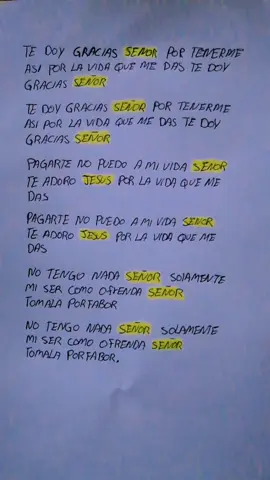 TE DOY GRACIAS SEÑOR POR TENERME
ASI POR LA VIDA QUE ME DAS TE DOY
GRACIAS SEÑOR
TE DOY GRACIAS SEÑOR POR TENERME
ASI POR LA VIDA QUE ME DAS TE DOY
GRACIAS SEÑOR
PAGARTE NO PUEDO A MI VIDA SEÑOR
TE ADORO JESUS POR LA VIDA QUE ME
DAS
PAGARTE NO PUEDO A MI VIDA SEÑOR
TE ADORO JESUS POR LA VIDA QUE ME
DAS
NO TENGO NADA SEÑOR SOLAMENTE
MI SER COMO OFRENDA SEÑOR
TOMALA PORFABOR
NO TENGO NADA SEÑOR SOLAMENTE
MI SER COMO OFRENDA SEÑOR
TOMALA PORFABOR.